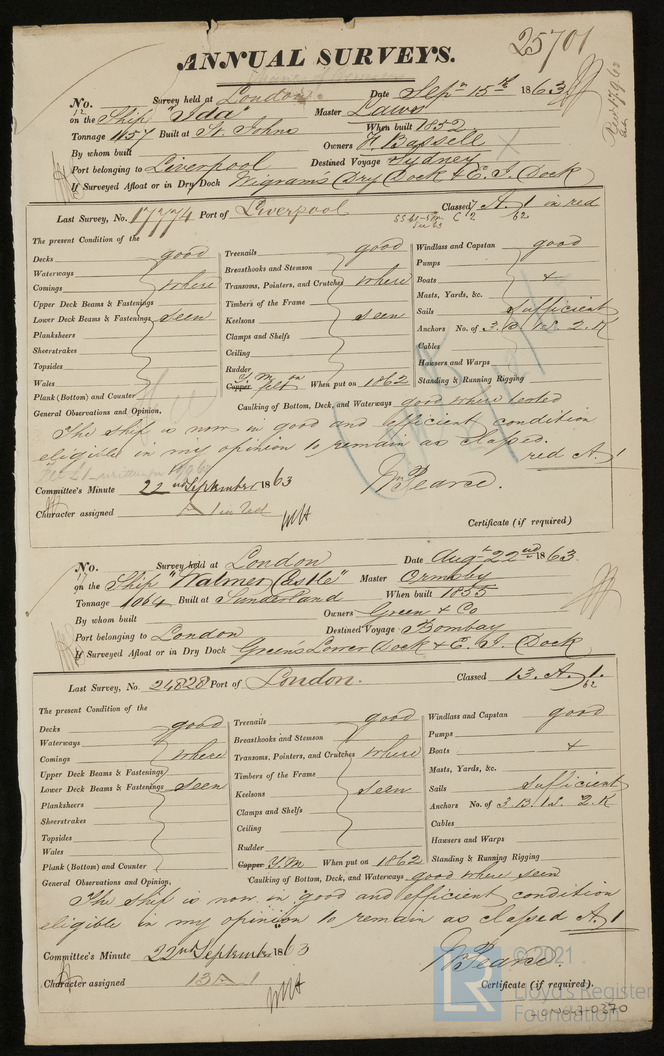 25701
ANNUAL SURVEYS.
No. 12 Survey held at London Date Sepr 15th 1863
on the Ship "Ida" Master Laws
Tonnage 1157 Built at St. Johns When built 1852
By whom built Owners
Port belonging to Liverpool Destined Voyage Sydney
If Surveyed Afloat or in Dry Dock Wigram's Dry Dock & E. I. Dock
Last Survey, No. 17774 Port of Liverpool Classed A.1 in red
62
The present Condition of the
Decks good Treenails good Windlass and Capstan good
Waterways Breasthooks and Stemson Pumps
Comings where Transoms, Pointers, and Crutches where Boats 4
Upper Deck Beams & Fastenings Timbers of the Frame Masts, Yards, &c.
Lower Deck Beams & Fastenings seen Keelsons seen Sails sufficient
Planksheers Clamps and Shelfs Anchors No. of 3. B. 1 S. 2. K
Sheerstrakes Ceiling Cables
Topsides Rudder Hawsers and Warps
Wales Copper Y. M on felt When put on 1862 Standing & Running Rigging
Plank (Bottom) and Counter Caulking of Bottom, Deck, and Waterways good where tested
General Observations and Opinion,
The ship is now in good and efficient condition
eligible in my opinion to remain as classed.
red A.1
Committee's Minute 22nd September 1863 Wm Pearce.
Character assigned A 1 in red
Certificate (if required)
No. 17 Survey held at London Date Augt 22nd 1863.
on the Ship "Walmer Castle" Master Ormsby
Tonnage 1064 Built at Sunderland When built 1855
By whom built Owners Green & Co
Port belonging to London Destined Voyage Bombay
If Surveyed Afloat or in Dry Dock Green's Lower Dock & E. I. Dock
Last Survey, No. 24828 Port of London. Classed 13. A. 1.
62
The present Condition of the
Decks good Treenails good Windlass and Capstan good
Waterways Breasthooks and Stemson Pumps
Comings where Transoms, Pointers, and Crutches where Boats 4
Upper Deck Beams & Fastenings Timbers of the Frame Masts, Yards, &c.
Lower Deck Beams & Fastenings seen Keelsons seen Sails sufficient
Planksheers Clamps and Shelfs Anchors No. of 3. B. 1 S. 2. K
Sheerstrakes Ceiling Cables
Topsides Rudder Hawsers and Warps
Wales Copper Y. M When put on 1862 Standing & Running Rigging
Plank (Bottom) and Counter Caulking of Bottom, Deck, and Waterways good where seen
General Observations and Opinion,
The ship is now in good and efficient condition
eligible in my opinion to remain as classed A.1
Committee's Minute 22nd September 1863 Wm Pearce.
Character assigned 13 A 1
Certificate (if required).
© 2021
LR
Lloyd's Register
Foundation